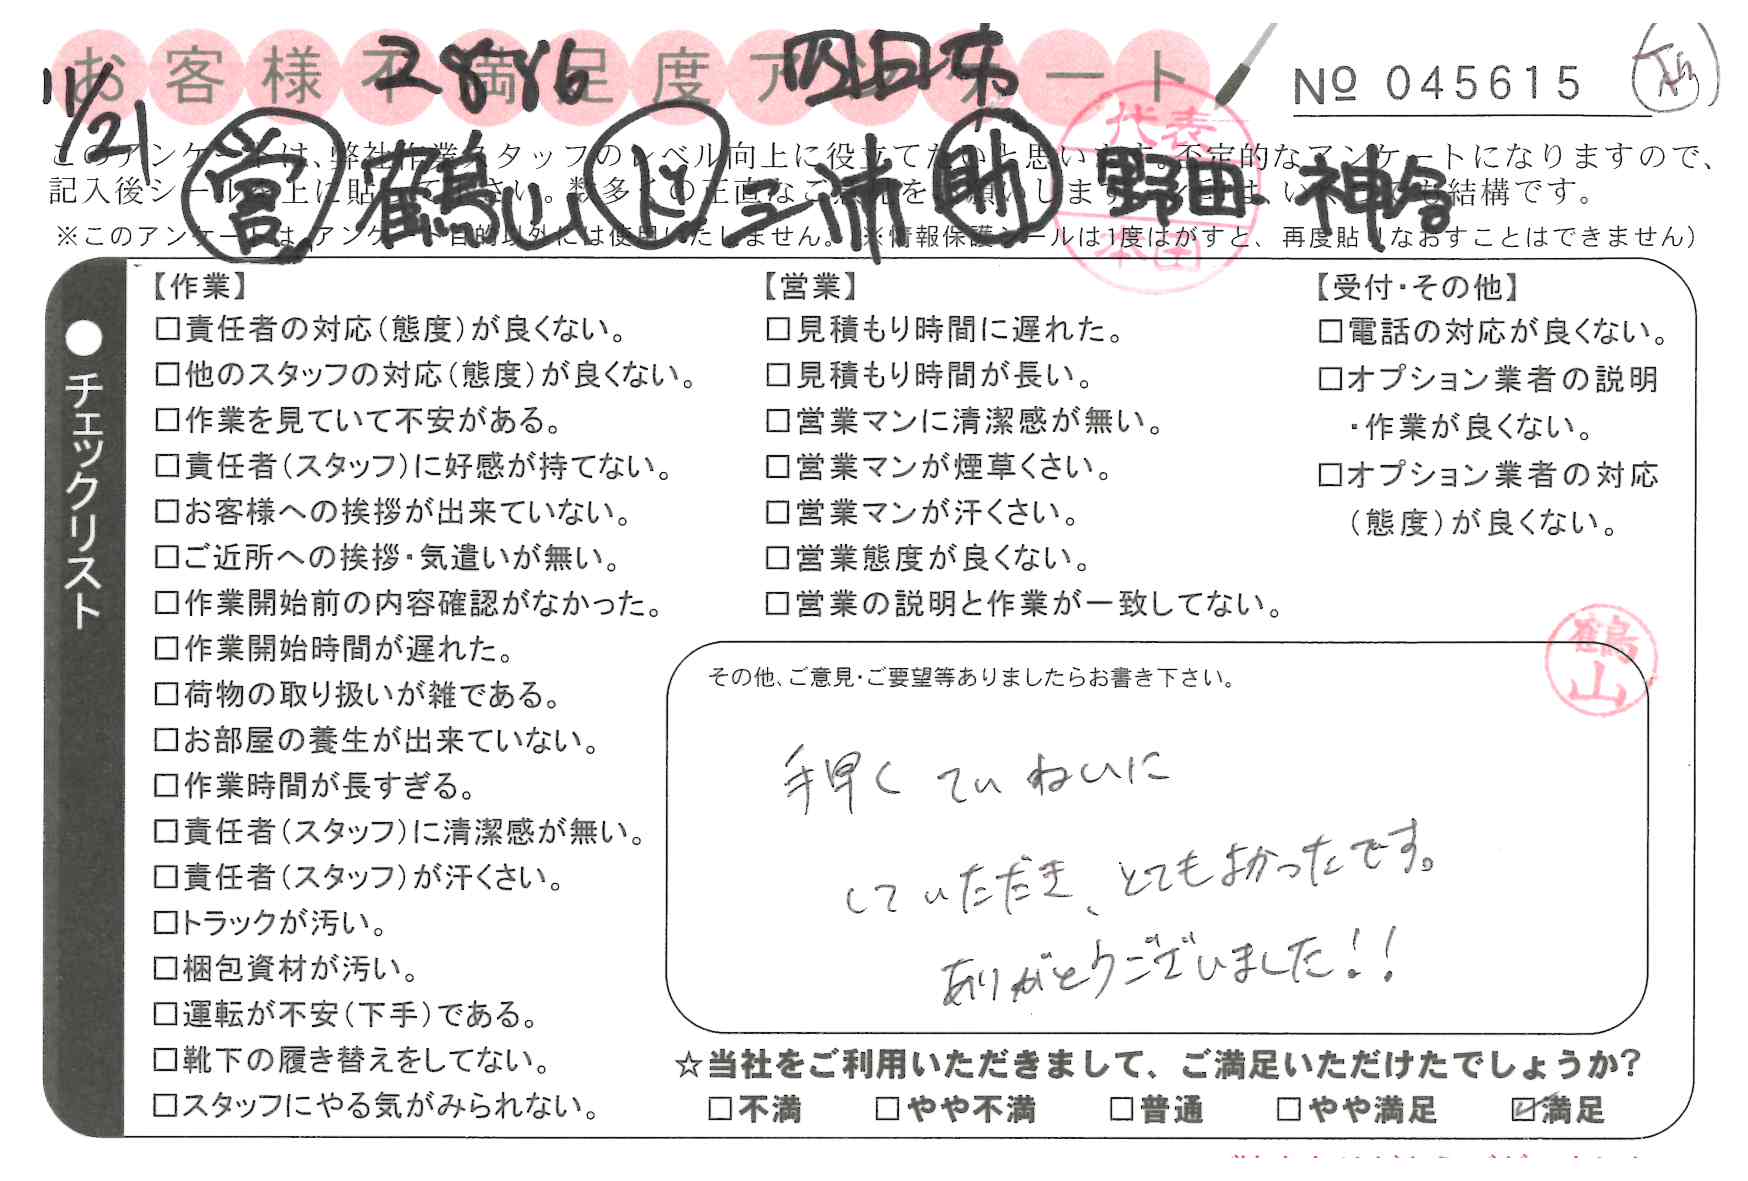 お客様不満足度アンケート
No 045615
11/21 2886 四日市
営 鶴山 ト 三浦 助 野田 神谷
代表
本田
このアンケートは、弊社作業スタッフのレベル向上に役立てたいと思います。否定的なアンケートになりますので、
記入後シールを上に貼って下さい。数多くの正直なご意見をお願いします。いくつでも結構です。
※このアンケートは、アンケート目的以外には使用いたしません。(※情報保護シールは1度はがすと、再度貼りなおすことはできません)
●チェックリスト
【作業】
□責任者の対応(態度)が良くない。
□他のスタッフの対応(態度)が良くない。
□作業を見ていて不安がある。
□責任者(スタッフ)に好感が持てない。
□お客様への挨拶が出来ていない。
□ご近所への挨拶・気遣いが無い。
□作業開始前の内容確認がなかった。
□作業開始時間が遅れた。
□荷物の取り扱いが雑である。
□お部屋の養生が出来ていない。
□作業時間が長すぎる。
□責任者(スタッフ)に清潔感が無い。
□責任者(スタッフ)が汗くさい。
□トラックが汚い。
□梱包資材が汚い。
□運転が不安(下手)である。
□靴下の履き替えをしてない。
□スタッフにやる気がみられない。
【営業】
□見積もり時間に遅れた。
□見積もり時間が長い。
□営業マンに清潔感が無い。
□営業マンが煙草くさい。
□営業マンが汗くさい。
□営業態度が良くない。
□営業の説明と作業が一致してない。
【受付・その他】
□電話の対応が良くない。
□オプション業者の説明
・作業が良くない。
□オプション業者の対応
(態度)が良くない。
鶴山
その他、ご意見・ご要望等ありましたらお書き下さい。
手早く ていねいに
していただき、とてもよかったです。
ありがとうございました!!
☆当社をご利用いただきまして、ご満足いただけたでしょうか?
□不満 □やや不満 □普通 □やや満足 ☑満足